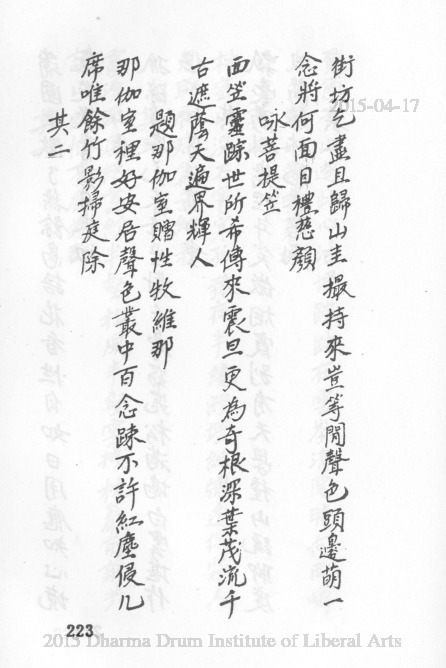 街坊乞盡且歸山圭撮持來豈等閒聲色頭邊萌一
念將何面目禮慈顏
咏菩提笠
西笠靈踪世所希傳來震旦更為奇根深葉茂流千
古遮蔭天遍界輝人
題那伽室贈性牧維那
那伽室裡好安居聲色叢中百念踈不許紅塵侵几
席唯餘竹影掃庭除
其二
223
2015-04-17
2015 Dharma Drum Institute of Liberal Arts